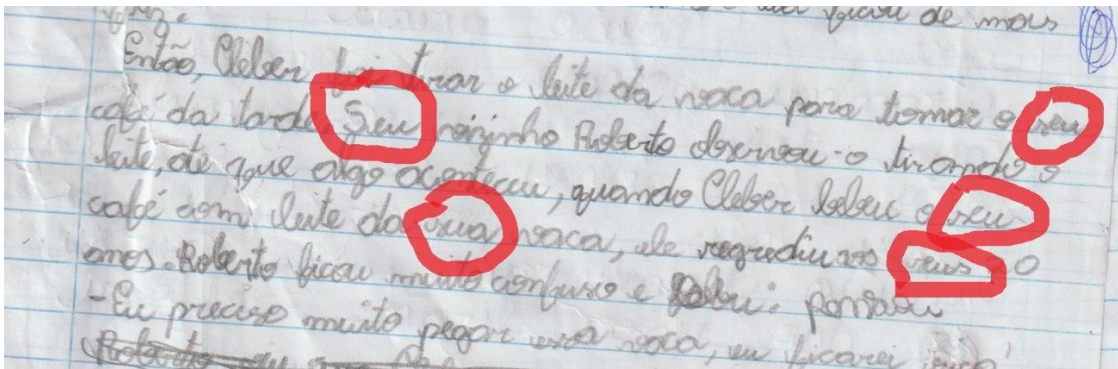 ficou de mais
Então, Cleber foi tirar o leite da vaca para tomar o seu
café da tarde. Seu vizinho Roberto observou-o tirando o
leite, até que algo aconteceu, quando Cleber bebeu o seu
café com leite da sua vaca, ele regrediu aos seus 20
anos. Roberto ficou muito confuso e pensou:
-Eu preciso muito pegar essa vaca, eu ficarei rico
Roberto